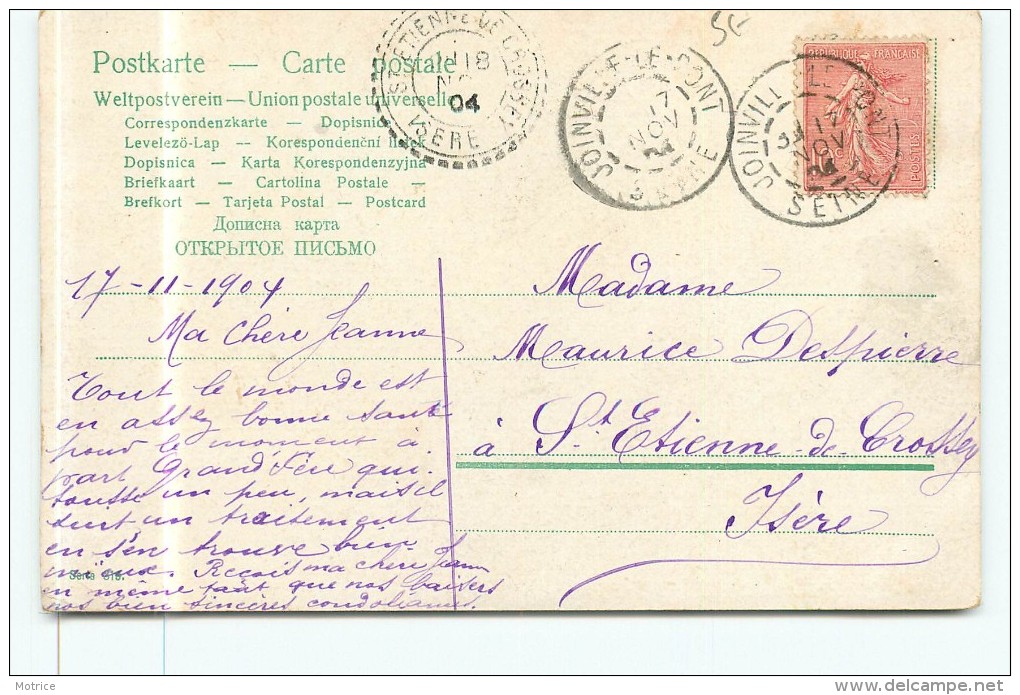 Postkarte — Carte postale
Weltpostverein — Union postale universelle
Correspondenzkarte — Dopisnice
Levelező-Lap — Korespondenční lístek
Dopisnica — Karta Korespondenzyjna
Briefkaart — Cartolina Postale —
Brefkort — Tarjeta Postal — Postcard
Дописна карта
ОТКРЫТОЕ ПИСЬМО
ST ETIENNE DE CROSSEY
18
NOV
04
ISERE
JOINVILLE-LE-PONT
17
NOV
04
SEINE
JOINVILLE-LE-PONT
17
NOV
04
SEINE
REPUBLIQUE FRANÇAISE
10c
POSTES
17-11-1904
Ma chère Jeanne
Tout le monde est
en assez bonne santé
pour le moment à
part Grand Père qui
tousse un peu, mais il
suit un traitement
en s'en trouve bien
mieux. Reçois ma chère Jeanne
en même tant que nos baisers
nos bien sincères condoléances.
Madame
Maurice Despierre
à St Etienne-de-Crossey
Isère
Serie 319.
Motrice
delcampe.net